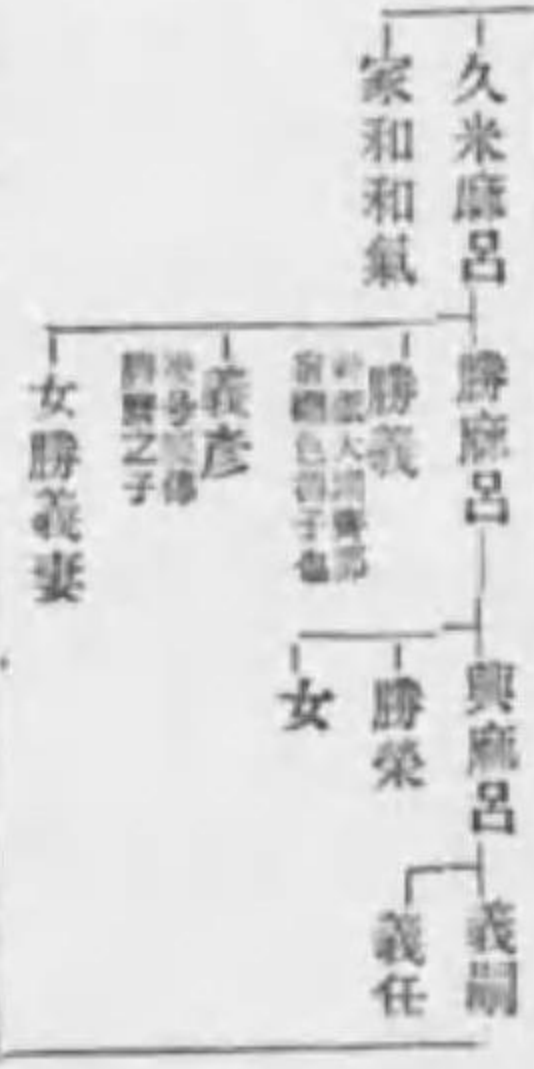 久米麻呂
家和和氣
勝麻呂
勝義
義彦
勝賢之子
女勝義妻
興麻呂
勝榮
女
義嗣
義任